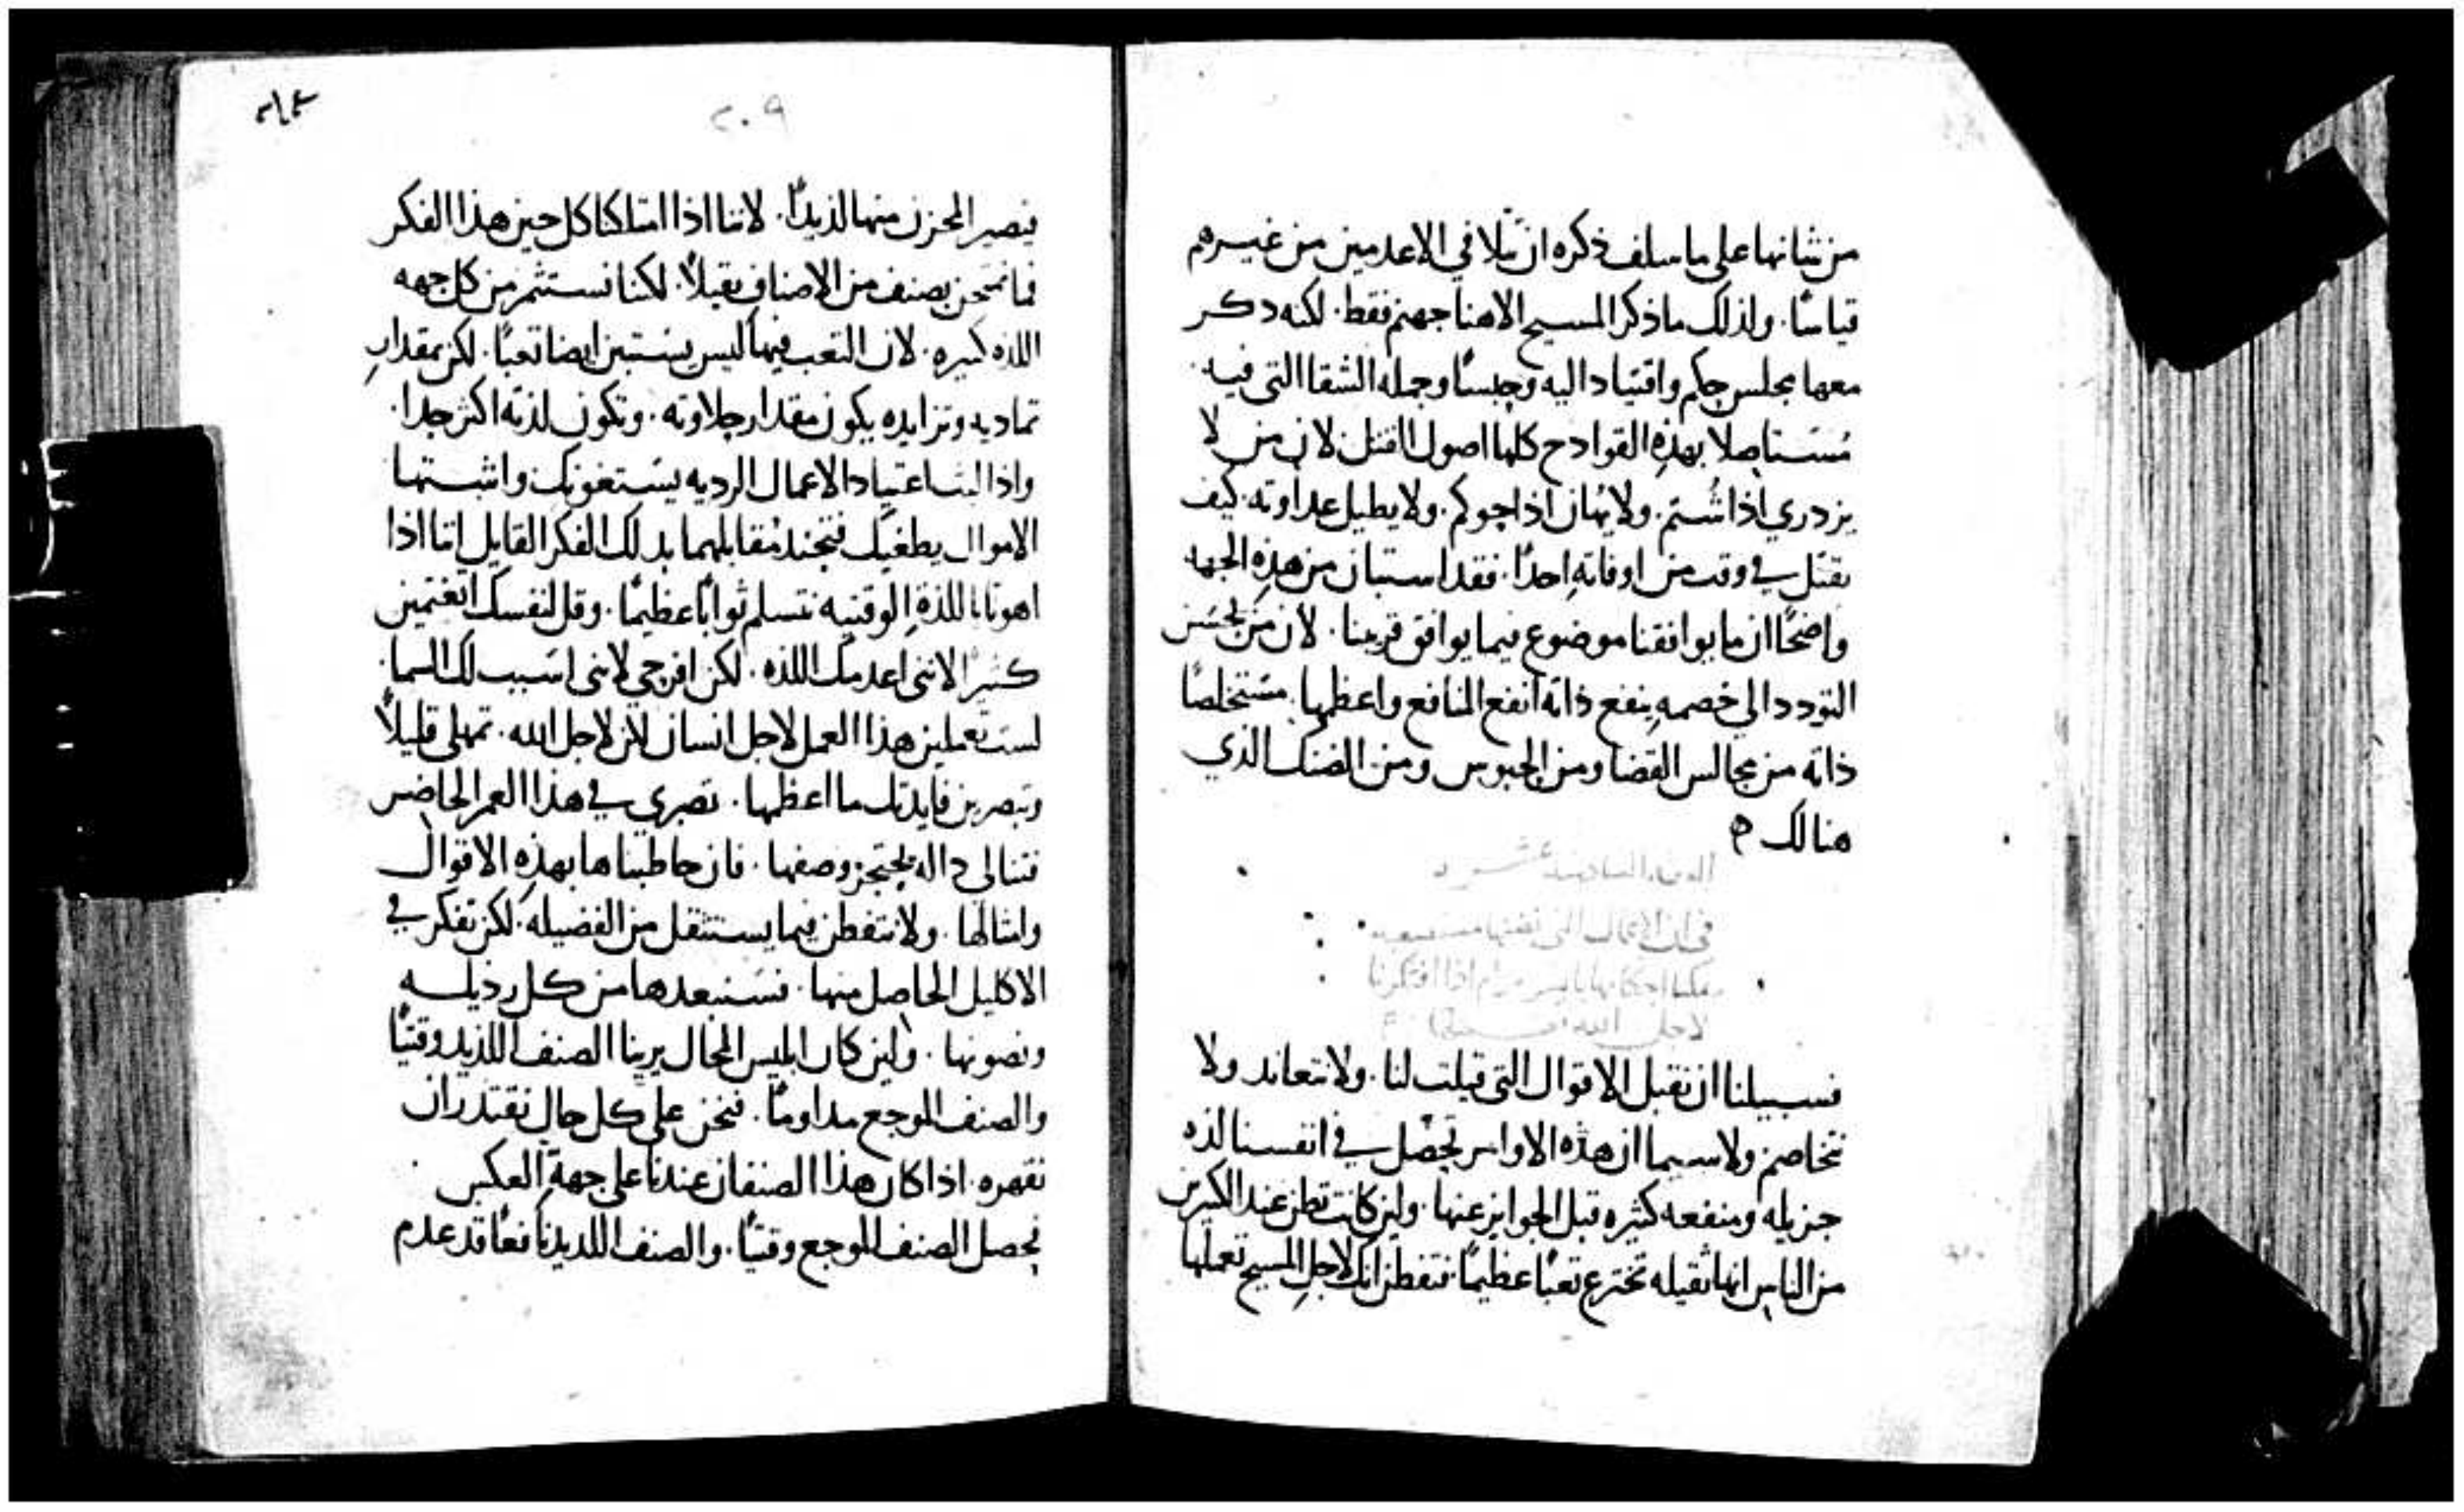 من شانها على ما سلف ذكره ان تلافي الاعدمين من غيرهم
قياسًا. ولذلك ما ذكر المسيح الاهنا جهنم فقط. لكنه دكر
معها مجلس حكم واقتياد اليه وحبسًا وجمله الشقا التى فيه.
مستاصلا بهذه القوادح كلها اصول القتل لان من لا
يزدري اذا شُتم. ولا يهان اذا حوكم. ولا يطيل عداوته. كيف
يقتل في وقت من اوقاته احدًا. فقد استبان من هذه الجهه
واضحًا ان ما يوافقنا موضوع فيما يوافق قريبنا. لان من يحسن
التودد الى خصمه ينفع ذاته انفع المنافع واعظمها. مستخلصًا
ذاته من مجالس القضا ومن الحبوس ومن الضنك الذي
هنالك
فى ان الاعمال التى
لاجل الله
فسبيلنا ان نقبل الاقوال التى قيلت لنا. ولا نتعاند ولا
نتخاصم ولاسيما ان هذه الاوامر تحصل في انفسنا لذه
جزيله ومنفعه كثيره قبل الجوايز عنها. ولين كانت تظن عند الكثيرين
من الناس انها ثقيله تخترع تعبًا عظيمًا. فتفطن انك لاجل المسيح تعملها
٢٠٩
فيصير المحزن منها لذيذًا. لاننا اذا امتلكنا كل حين هذا الفكر
فما نمتحن بصنف من الاصناف ثقيلاً. لكننا نستثمر من كل جهه
اللذه كثيره. لان التعب فيها ليس يستبين ايضا تعبًا. لكن بمقدار
تماديه وتزايده يكون مقدار حلاوته. وتكون لذته اكثر جدا.
واذا اعتياد الاعمال الرديه يستغويك واشتهيا
الاموال يطغيك فتجند مقابلهما بدلك الفكر القايل اننا اذا
اهونا باللذة الوقتيه نتسلم ثوابًا عظيمًا. وقل لنفسك اتغتمين
كثيرًا لاننى اعدمك اللذه. لكن افرحي لاننى اسبب لك السما.
لست تعملين هذا العمل لاجل انسان لكن لاجل الله. تمهلى قليلاً
وتبصرين فايدتك ما اعظمها. تصبري في هذا العمر الحاضر
فتنالي داله يحتجز وصفها. فان خاطبناها بهذه الاقوال
وامثالها. ولا نتفطن فيما يستثقل من الفضيله. لكن نفكر في
الاكليل الحاصل منها. نستبعدها من كل رذيله
ونصونها. ولين كان ابليس المحال يرينا الصنف اللذيد وقتيًا
والصنف الموجع مداومًا. فنحن على كل حال نقتدر ان
نقهره. اذا كان هذا الصنفان عندنا على جهة العكس
يحصل الصنف الموجع وقتيًا. والصنف اللديد نافعًا قد عدم